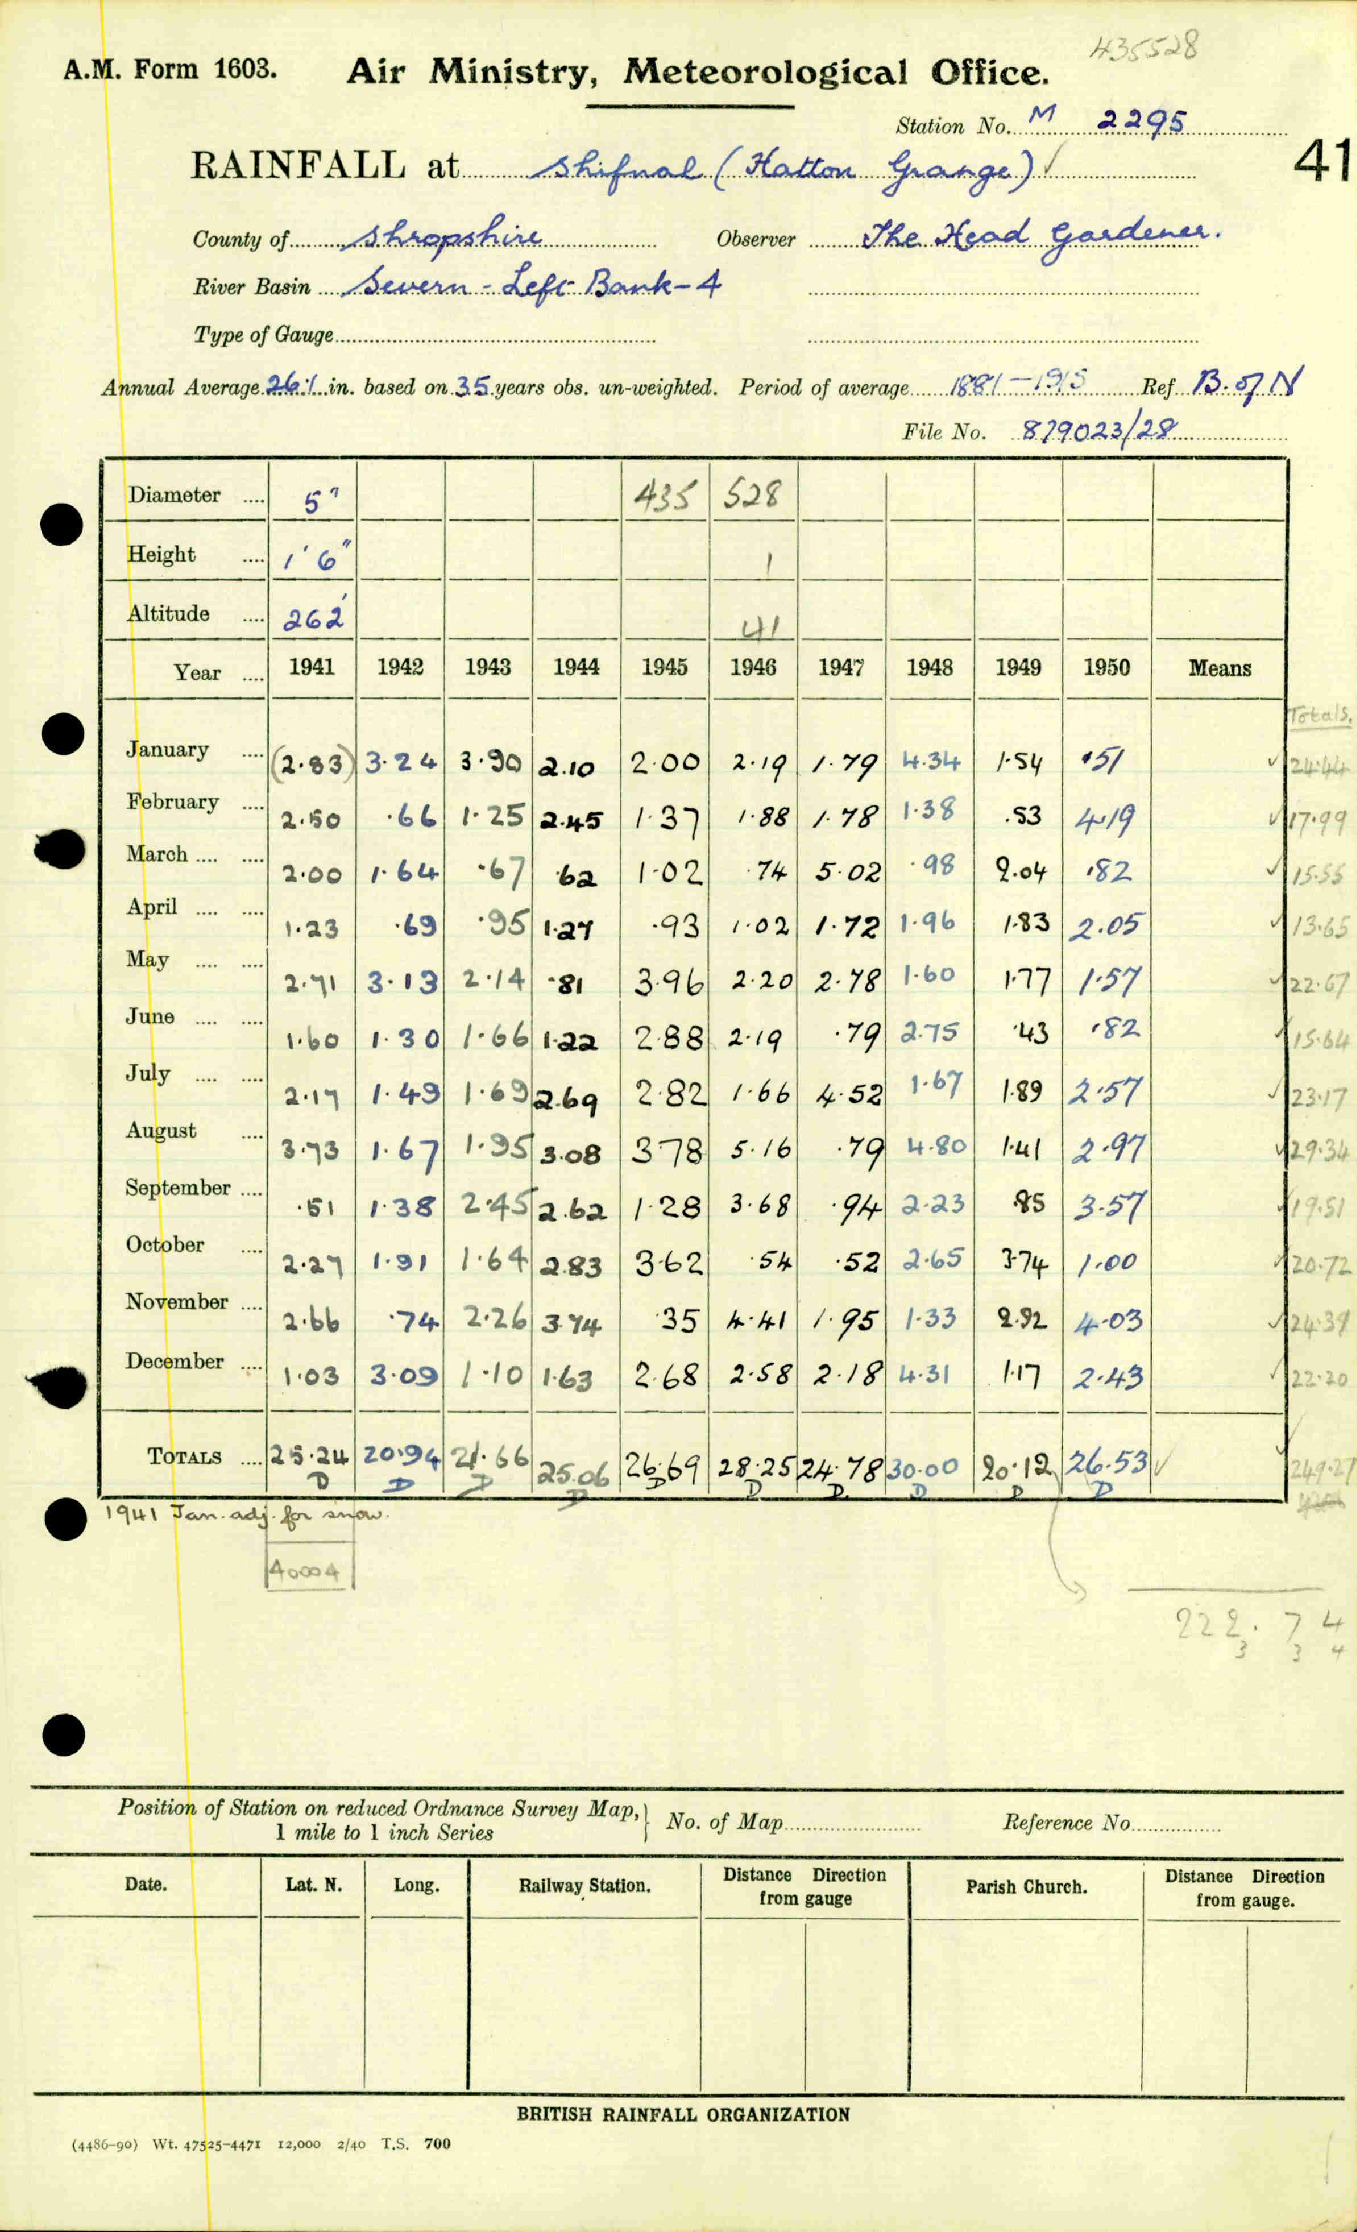 435528
A.M. Form 1603. Air Ministry, Meteorological Office.
Station No. M 2295
41
RAINFALL at Shifnal (Hatton Grange) ✓
County of Shropshire Observer The Head Gardener.
River Basin Severn - Left Bank - 4
Type of Gauge
Annual Average 26.1 in. based on 35 years obs. un-weighted. Period of average 1881-1915 Ref B. of N
File No. 879023/28
Diameter .... 5" 435 528
Height .... 1' 6" 1
Altitude .... 262' 41
Year .... 1941 1942 1943 1944 1945 1946 1947 1948 1949 1950 Means
Totals.
January .... (2.83) 3.24 3.90 2.10 2.00 2.19 1.79 4.34 1.54 .51 ✓ 24.44
February .... 2.50 .66 1.25 2.45 1.37 1.88 1.78 1.38 .53 4.19 ✓ 17.99
March .... .... 2.00 1.64 .67 .62 1.02 .74 5.02 .98 2.04 .82 ✓ 15.55
April .... .... 1.23 .69 .95 1.27 .93 1.02 1.72 1.96 1.83 2.05 ✓ 13.65
May .... .... 2.71 3.13 2.14 .81 3.96 2.20 2.78 1.60 1.77 1.57 ✓ 22.67
June .... .... 1.60 1.30 1.66 1.22 2.88 2.19 .79 2.75 .43 .82 ✓ 15.64
July .... .... 2.17 1.49 1.69 2.69 2.82 1.66 4.52 1.67 1.89 2.57 ✓ 23.17
August .... 3.73 1.67 1.95 3.08 3.78 5.16 .79 4.80 1.41 2.97 ✓ 29.34
September .... .51 1.38 2.45 2.62 1.28 3.68 .94 2.23 .85 3.57 ✓ 19.51
October .... 2.27 1.91 1.64 2.83 3.62 .54 .52 2.65 3.74 1.00 ✓ 20.72
November .... 2.66 .74 2.26 3.74 .35 4.41 1.95 1.33 2.92 4.03 ✓ 24.39
December .... 1.03 3.09 1.10 1.63 2.68 2.58 2.18 4.31 1.17 2.43 ✓ 22.20
TOTALS .... 25.24 20.94 21.66 25.06 26.69 28.25 24.78 30.00 20.12 26.53 ✓ ✓ 249.27
D D D D D D D D D D
1941 Jan. adj. for snow.
40004
222.74
3 3 4
Position of Station on reduced Ordnance Survey Map,
1 mile to 1 inch Series
No. of Map Reference No
Date. Lat. N. Long. Railway Station. Distance Direction from gauge Parish Church. Distance Direction from gauge.
BRITISH RAINFALL ORGANIZATION
(4486-90) Wt. 47525-4471 12,000 2/40 T.S. 700